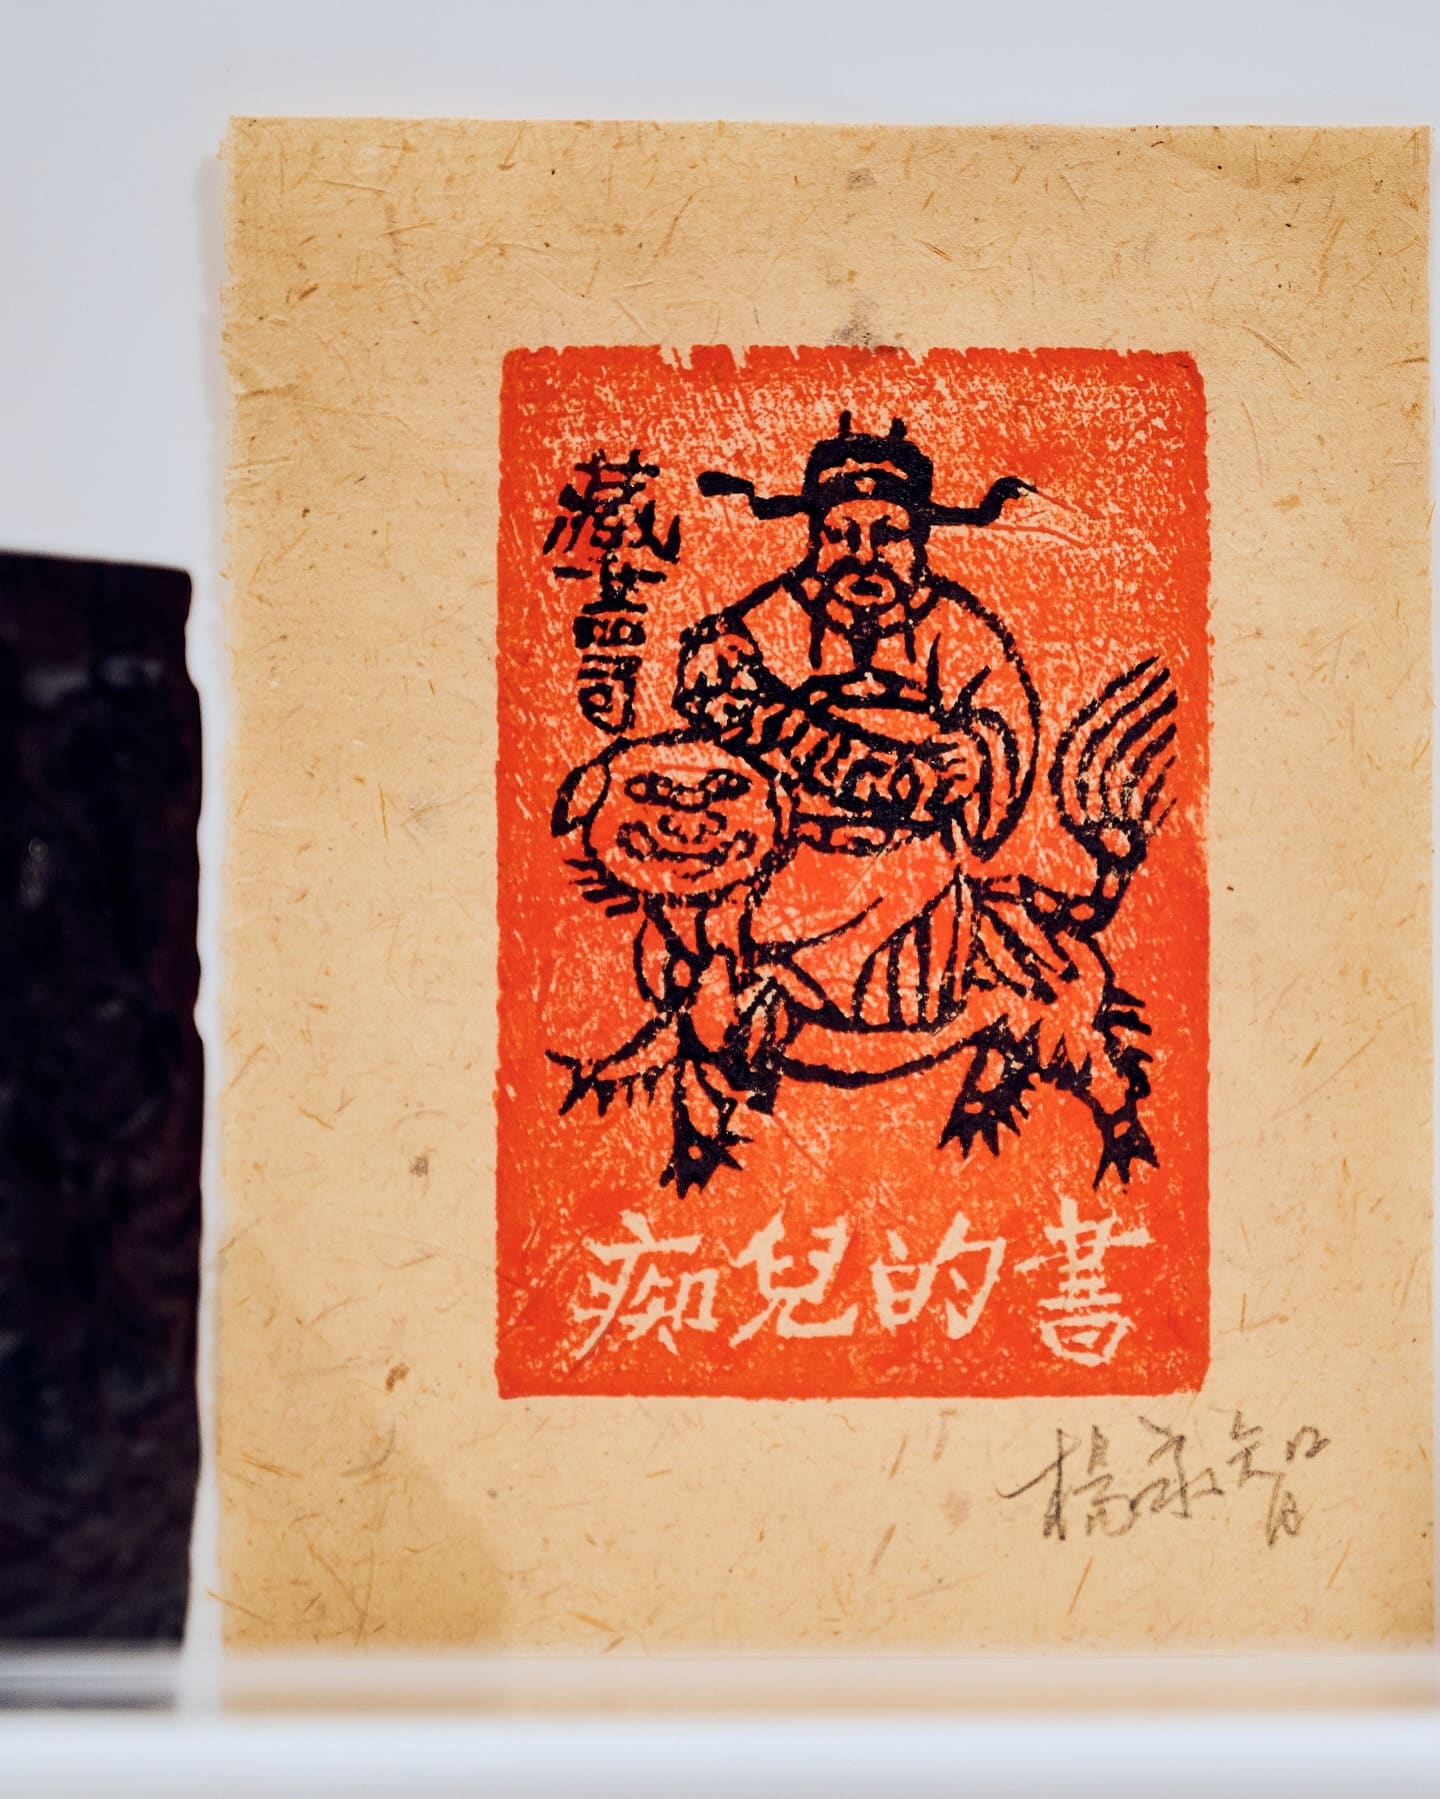 藏
痴兒的書
楊永智